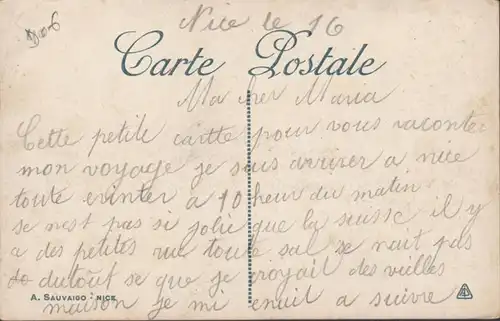 Nice le 16
Carte Postale
Ma cher Maria
Cette petite cartte pour vous raconter
mon voyage je suis arrizer a nice
toute erinter a 10 heur du matin
se nest pas si jolie que la suisse il y
a des petites rue toute sal se nait pas
dutout se que je croyail des veilles
A. SAUVAIGO - NICE
maison je mi enuil a suivre